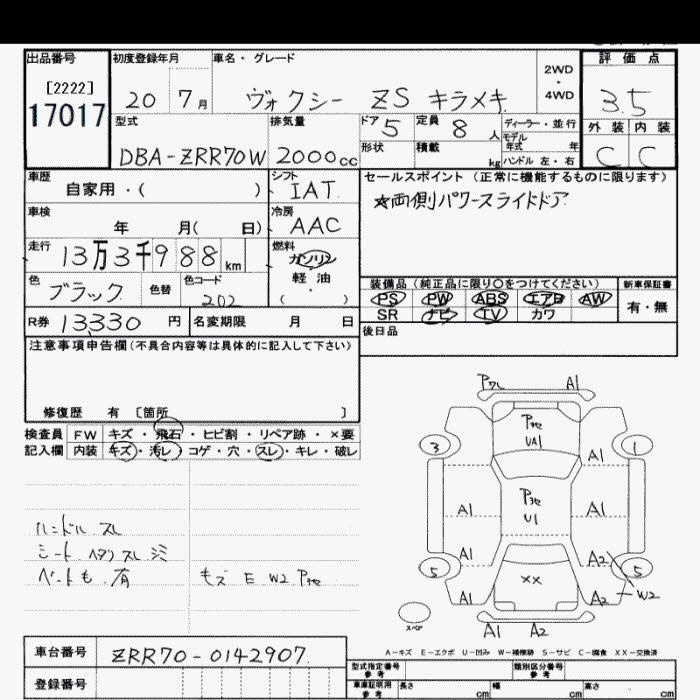 出品番号 初度登録年月 車名・グレード 評価点
[2222]
17017
20 7月 ヴォクシー ZS キラメキ 2WD・4WD 3.5
型式 排気量 ドア 5 定員 8人 ディーラー・並行 外装 内装
モデル年式 年
DBA-ZRR70W 2000cc 形状 積載 kg ハンドル 左・右 C C
車歴 シフト セールスポイント (正常に機能するものに限ります)
自家用・( ) IAT ☆両側パワースライドドア
車検 冷房
年 月( 日) AAC
走行 燃料
13万3千988km ガソリン
軽油・( )
色 色替 色コード 装備品 (純正品に限り〇をつけてください) 新車保証書
ブラック 202 PS PW ABS エアB AW 有・無
SR ナビ TV カワ
R券 13330円 名変期限 月 日 後日品
注意事項申告欄(不具合内容等は具体的に記入して下さい)
修復歴 有 〔箇所 〕
検査員 FW キズ・飛石・ヒビ割・リペア跡・×要
記入欄 内装 キズ・汚レ・コゲ・穴・スレ・キレ・破レ
Pワレ A1
3 UA1 1
A1
A1 U1 A1
A1 A2
5 ×× 5
A1 W2
スペア A1 A2
ハンドル スレ
シート ヘタリ スレ シミ
ペットも 有 キズ E W2
A-キズ E-エクボ U-凹み W-補修跡 S-サビ C-腐食 XX-交換済
車台番号 ZRR70-0142907 型式指定番号 参考 類別区分番号 参考
登録番号 車庫証明用 参考 長さ cm 幅 cm 高さ cm